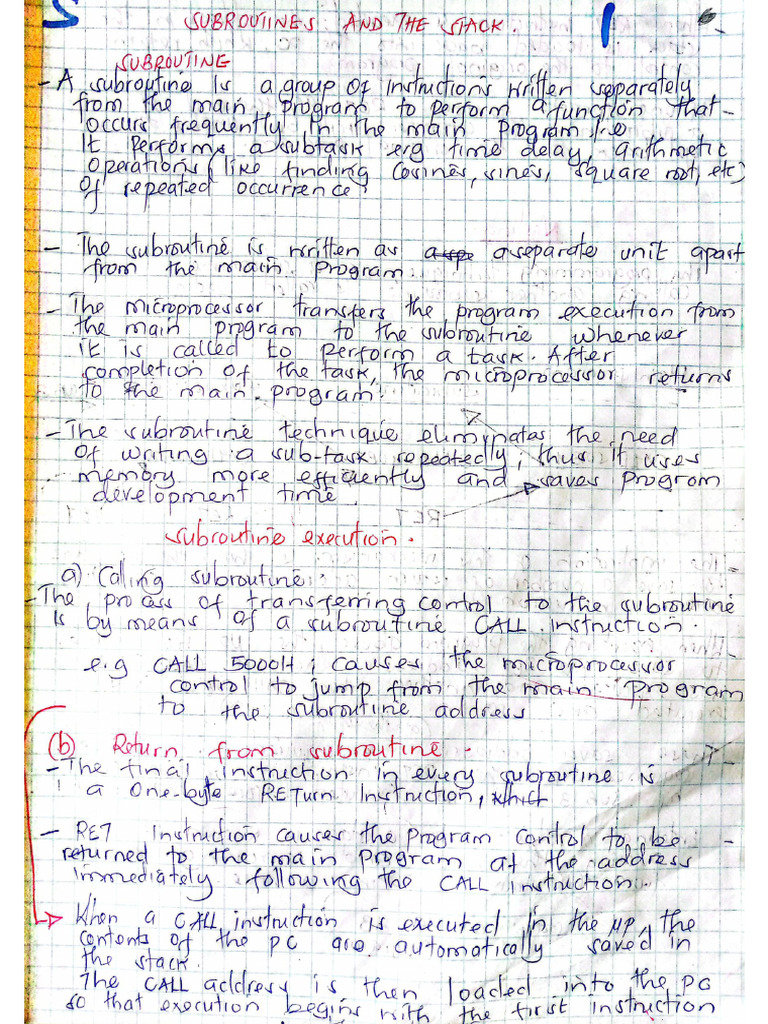 SUBROUTINES AND THE STACK.
SUBROUTINE
- A subroutine is a group of instructions written separately
from the main program to perform a function that
occurs frequently in the main program i.e
it performs a subtask e.g time delay, arithmetic
operations (like finding cosines, sines, square root, etc)
of repeated occurrence.
- The subroutine is written as a separate unit apart
from the main program.
- The microprocessor transfers the program execution from
the main program to the subroutine whenever
it is called to perform a task. After
completion of the task, the microprocessor returns
to the main program.
- The subroutine technique eliminates the need
of writing a sub-task repeatedly, thus it uses
memory more efficiently and saves program
development time.
Subroutine execution.
a) Caling subroutine:
- The process of transferring control to the subroutine
is by means of a subroutine CALL instruction.
e.g CALL 5000H ; causes the microprocessor
control to jump from the main program
to the subroutine address
(b) Return from subroutine.
- The final instruction in every subroutine is
a one-byte RETurn Instruction, which
- RET instruction causes the program control to be
returned to the main program at the address
immediately following the CALL instruction.
When a CALL instruction is executed in the μP, the
contents of the PC are automatically saved in
the stack.
The CALL address is then loaded into the PC
so that execution begins with the first instruction